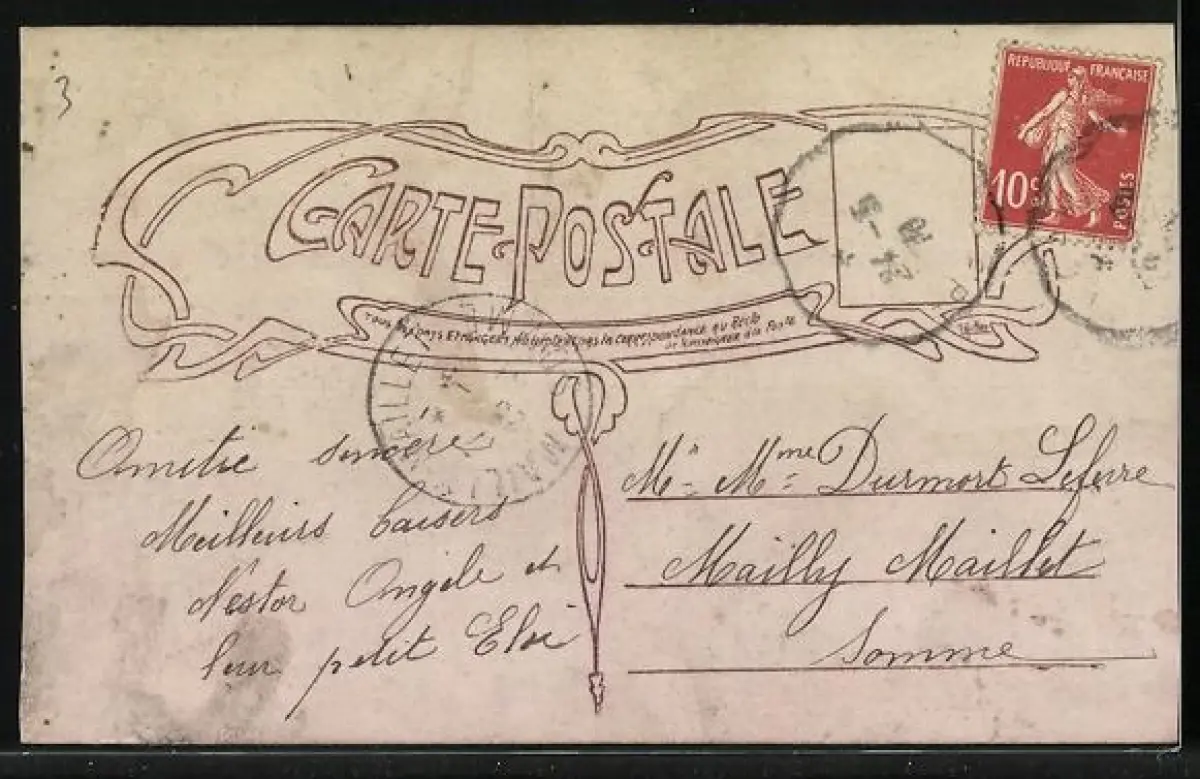 3
RÉPUBLIQUE FRANÇAISE
10 c
POSTES
CARTE POSTALE
TOUS LES PAYS ETRANGERS N'ACCEPTENT PAS LA CORRESPONDANCE AU RECTO
SE RENSEIGNER A LA POSTE
MAILLY MAILLET
Amitié sincère
Meilleurs baisers
Nestor Angele et
leur petit Eloi
Mr Mme Durmort Lefevre
Mailly Maillet
Somme